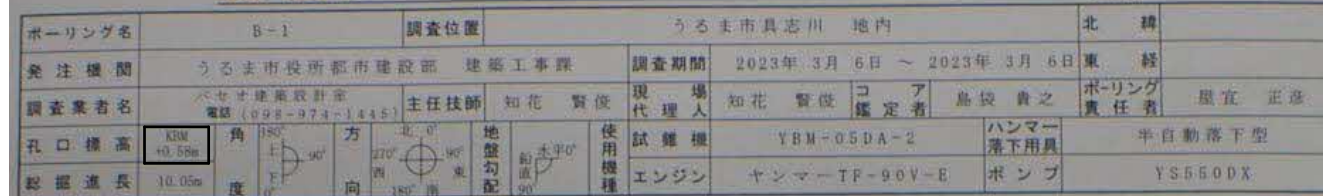 ボーリング名 B-1 調査位置 うるま市具志川 地内 北緯
発注機関 うるま市役所都市建設部 建築工事課 調査期間 2023年 3月 6日 ～ 2023年 3月 6日 東経
調査業者名 パセオ建築設計室 電話 (098-974-1445) 主任技師 知花 賢俊 現場代理人 知花 賢俊 コア鑑定者 島袋 貴之 ボーリング責任者 屋宜 正彦
孔口標高 KBM +0.58m 角度 180° 上 下 0° 90° 方向 北 0° 270° 西 90° 東 180° 南 地盤勾配 水平0° 鉛直 90° 使用機種 試錐機 YBM-05DA-2 ハンマー落下用具 半自動落下型
総掘進長 10.05m エンジン ヤンマーTF-90V-E ポンプ YS550DX